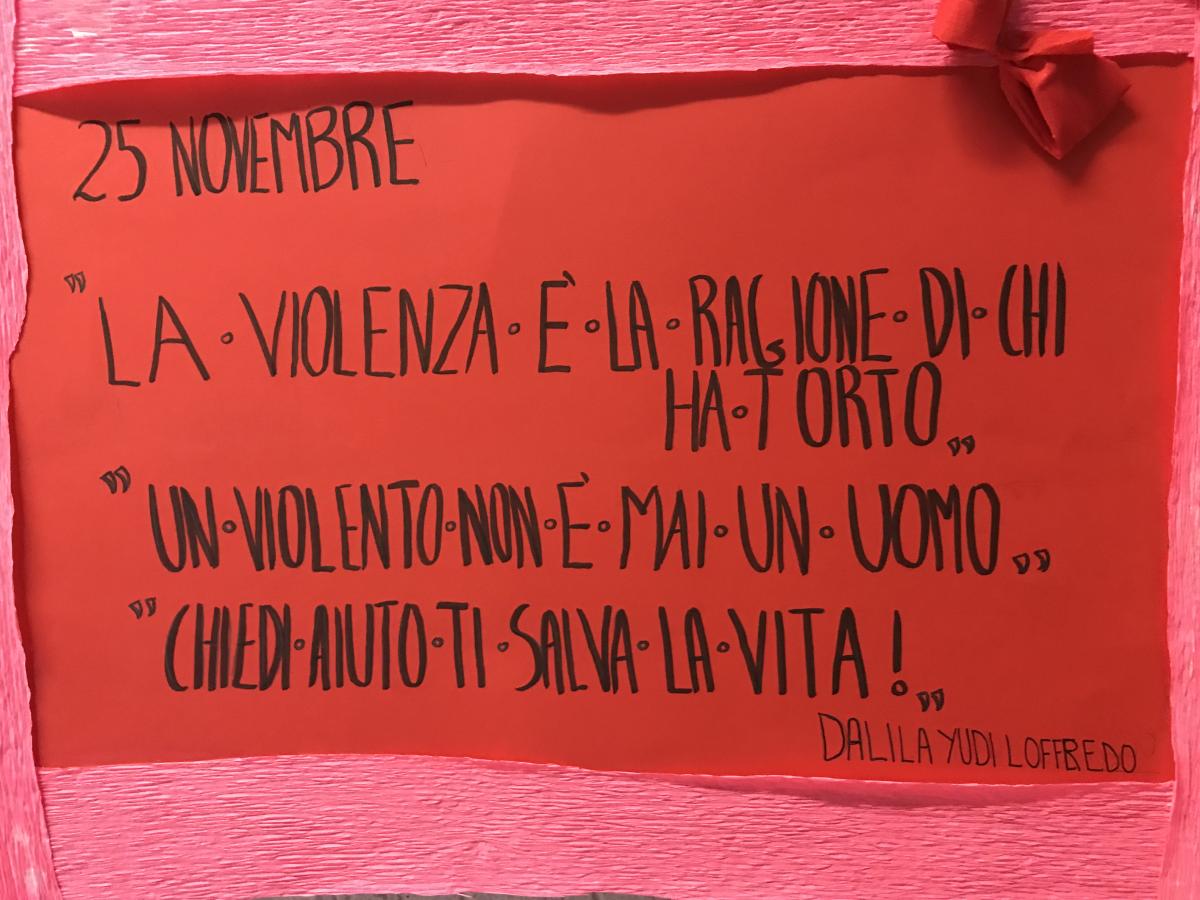 25 NOVEMBRE
" LA • VIOLENZA • È • LA • RAGIONE • DI • CHI
HA • TORTO „
" UN • VIOLENTO • NON • È • MAI • UN • UOMO „
" CHIEDI • AIUTO • TI • SALVA • LA • VITA ! „
DALILA YUDI LOFFREDO